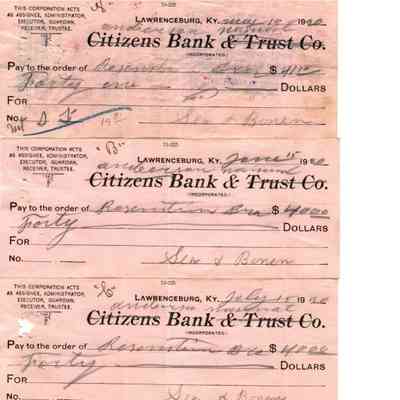 "A"
73-225
THIS CORPORATION ACTS
AS ASSIGNEE, ADMINISTRATOR,
EXECUTOR, GUARDIAN,
RECEIVER, TRUSTEE.
LAWRENCEBURG, KY. May 15 1920
Anderson National
Citizens Bank & Trust Co.
(INCORPORATED)
Pay to the order of Rosenstein Bros $ 41 00
Forty one DOLLARS
FOR
No.
Geo S Bonen
"B"
73-225
THIS CORPORATION ACTS
AS ASSIGNEE, ADMINISTRATOR,
EXECUTOR, GUARDIAN,
RECEIVER, TRUSTEE.
LAWRENCEBURG, KY. June 15 1920
Anderson National
Citizens Bank & Trust Co.
(INCORPORATED)
Pay to the order of Rosenstein Bro $ 40 00
Forty DOLLARS
FOR
No.
Geo S Bonen
"C"
73-225
THIS CORPORATION ACTS
AS ASSIGNEE, ADMINISTRATOR,
EXECUTOR, GUARDIAN,
RECEIVER, TRUSTEE.
LAWRENCEBURG, KY. July 15 1920
Anderson National
Citizens Bank & Trust Co.
(INCORPORATED)
Pay to the order of Rosenstein Bro $ 40 00
Forty DOLLARS
FOR
No.
Geo S Bonen